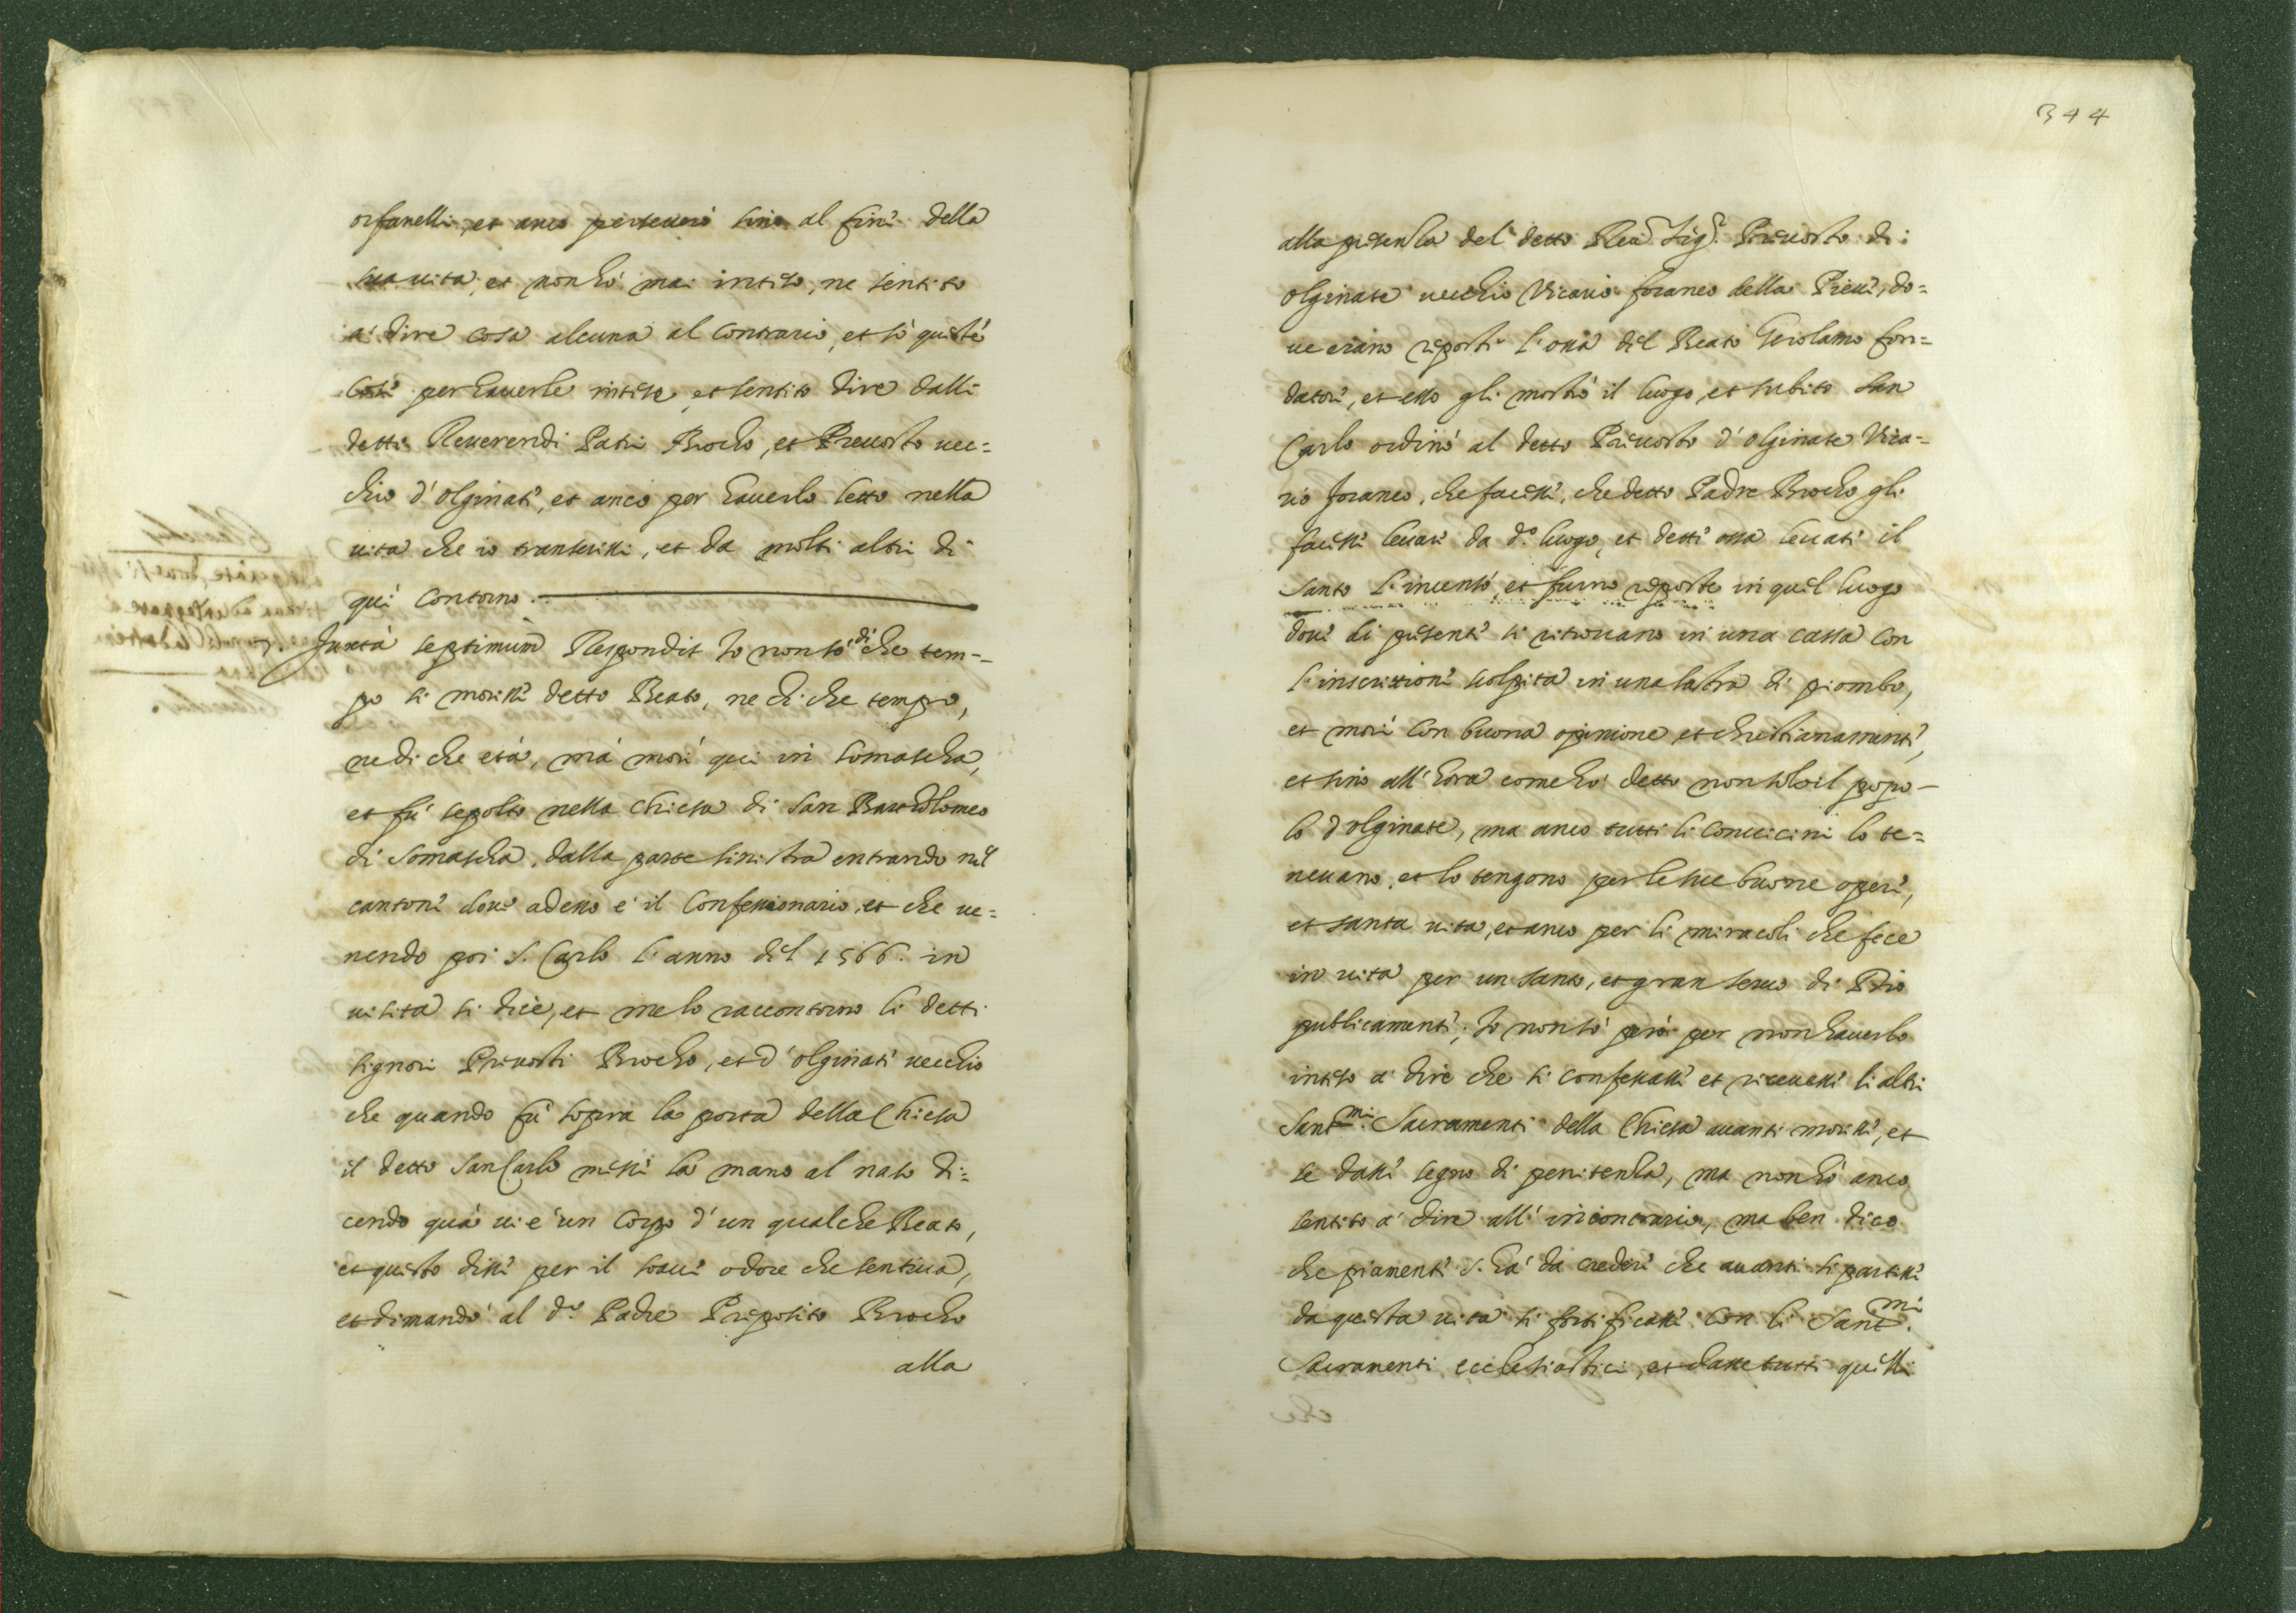 orfanelli, et anco perseuerò sino al fine della
sua uita, et non hò mai inteso, ne sentito
à dire cosa alcuna al contrario, et sò queste
cose per hauerle intese, et sentito dire dalli
detti Reuerendi Patri Brocho, et Preuosto uec=
chio d'olginate, et anco per hauerlo letto nella
uita che io transcrissi, et da molti altri di
qui contorno.
7. Juxta septimum Respondit Io non sò di che tem=
po si morisse detto Beato, ne di che tempo,
ne di che età, mà morì qui in Somascha,
et fù sepolto nella Chiesa di San Bartholomeo
di Somascha, dalla parte sinistra entrando nel
cantone doue adesso è il Confessionario, et che ue=
nendo poi S. Carlo l'anno del 1566. in
uisita si dice, et me lo raccontorno li detti
signori Preuosti Brocho, et d'olginate uecchio
che quando fù sopra la porta della Chiesa
il detto San Carlo messe la mano al naso di=
cendo quà ui è un Corpo d'un qualche Beato,
et questo disse per il soaue odore che sentiua,
et dimandò al d.o Padre Preposito Brocho
alla
344
alla presenza del detto Reu.do Sig.r Preuosto di
olginate uecchio Vicario foraneo della Pieue, do=
ue erano reposti l'ossa del Beato Gerolamo fon=
datore, et esso gli mostrò il luogo, et subito San
Carlo ordinò al detto Preuosto d'olginate Vica=
rio foraneo, che facesse, che detto Padre Brocho gli
facesse leuare da d.o luogo, et dette ossa leuate il
Santo l'incensò, et furno reposte in quel luogo
doue di presente si ritrouano in una cassa con
l'inscrittione scolpita in una lastra di piombo,
et morì con buona opinione et christianamente,
et sino all'hora come hò detto non solo il popo=
lo d'olginate, ma anco tutti li conuicini lo te=
neuano, et lo tengono per le sue buone opere,
et santa uita, et anco per li miracoli che fece
in uita per un santo, et gran seruo di Dio
publicamente; Io non sò però per non hauerlo
inteso à dire che si confessasse et riceuesse li altri
Sant.mi Sacramenti della Chiesa auanti morisse, et
se dasse segno di penitenza, ma non hò anco
sentito à dire all'incontrario, ma ben dico
che piamente s'hà da credere che auanti si partisse
da questa uita si fortificasse con li Sant.mi
Sacramenti ecclesiastici, et dasse tutti quelli